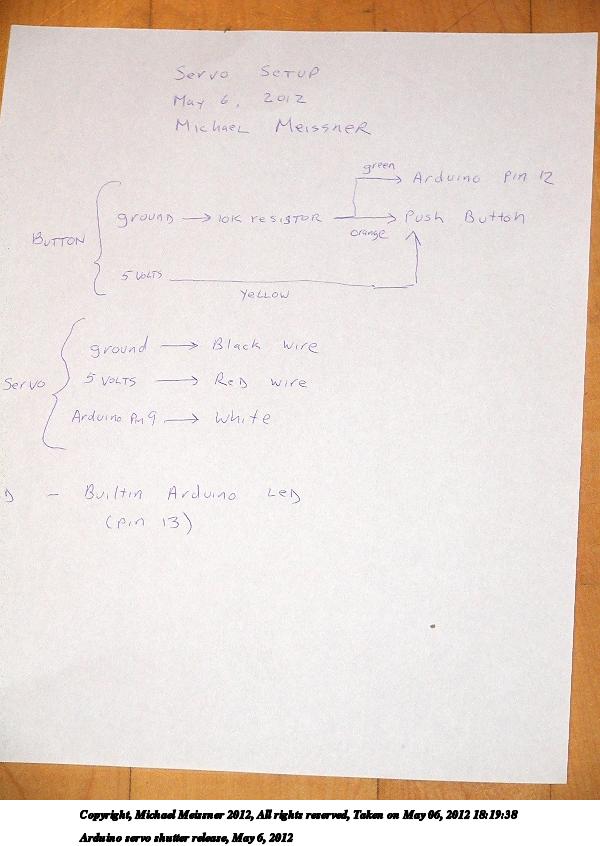 Servo Setup
May 6, 2012
Michael Meissner
green
Arduino Pin 12
ground → 10K resistor → Push Button
orange
Button
5 volts
yellow
ground → Black wire
Servo
5 volts → Red wire
Arduino Pin 9 → White
D - Builtin Arduino LED
(pin 13)
Copyright, Michael Meissner 2012, All rights reserved, Taken on May 06, 2012 18:19:38
Arduino servo shutter release, May 6, 2012